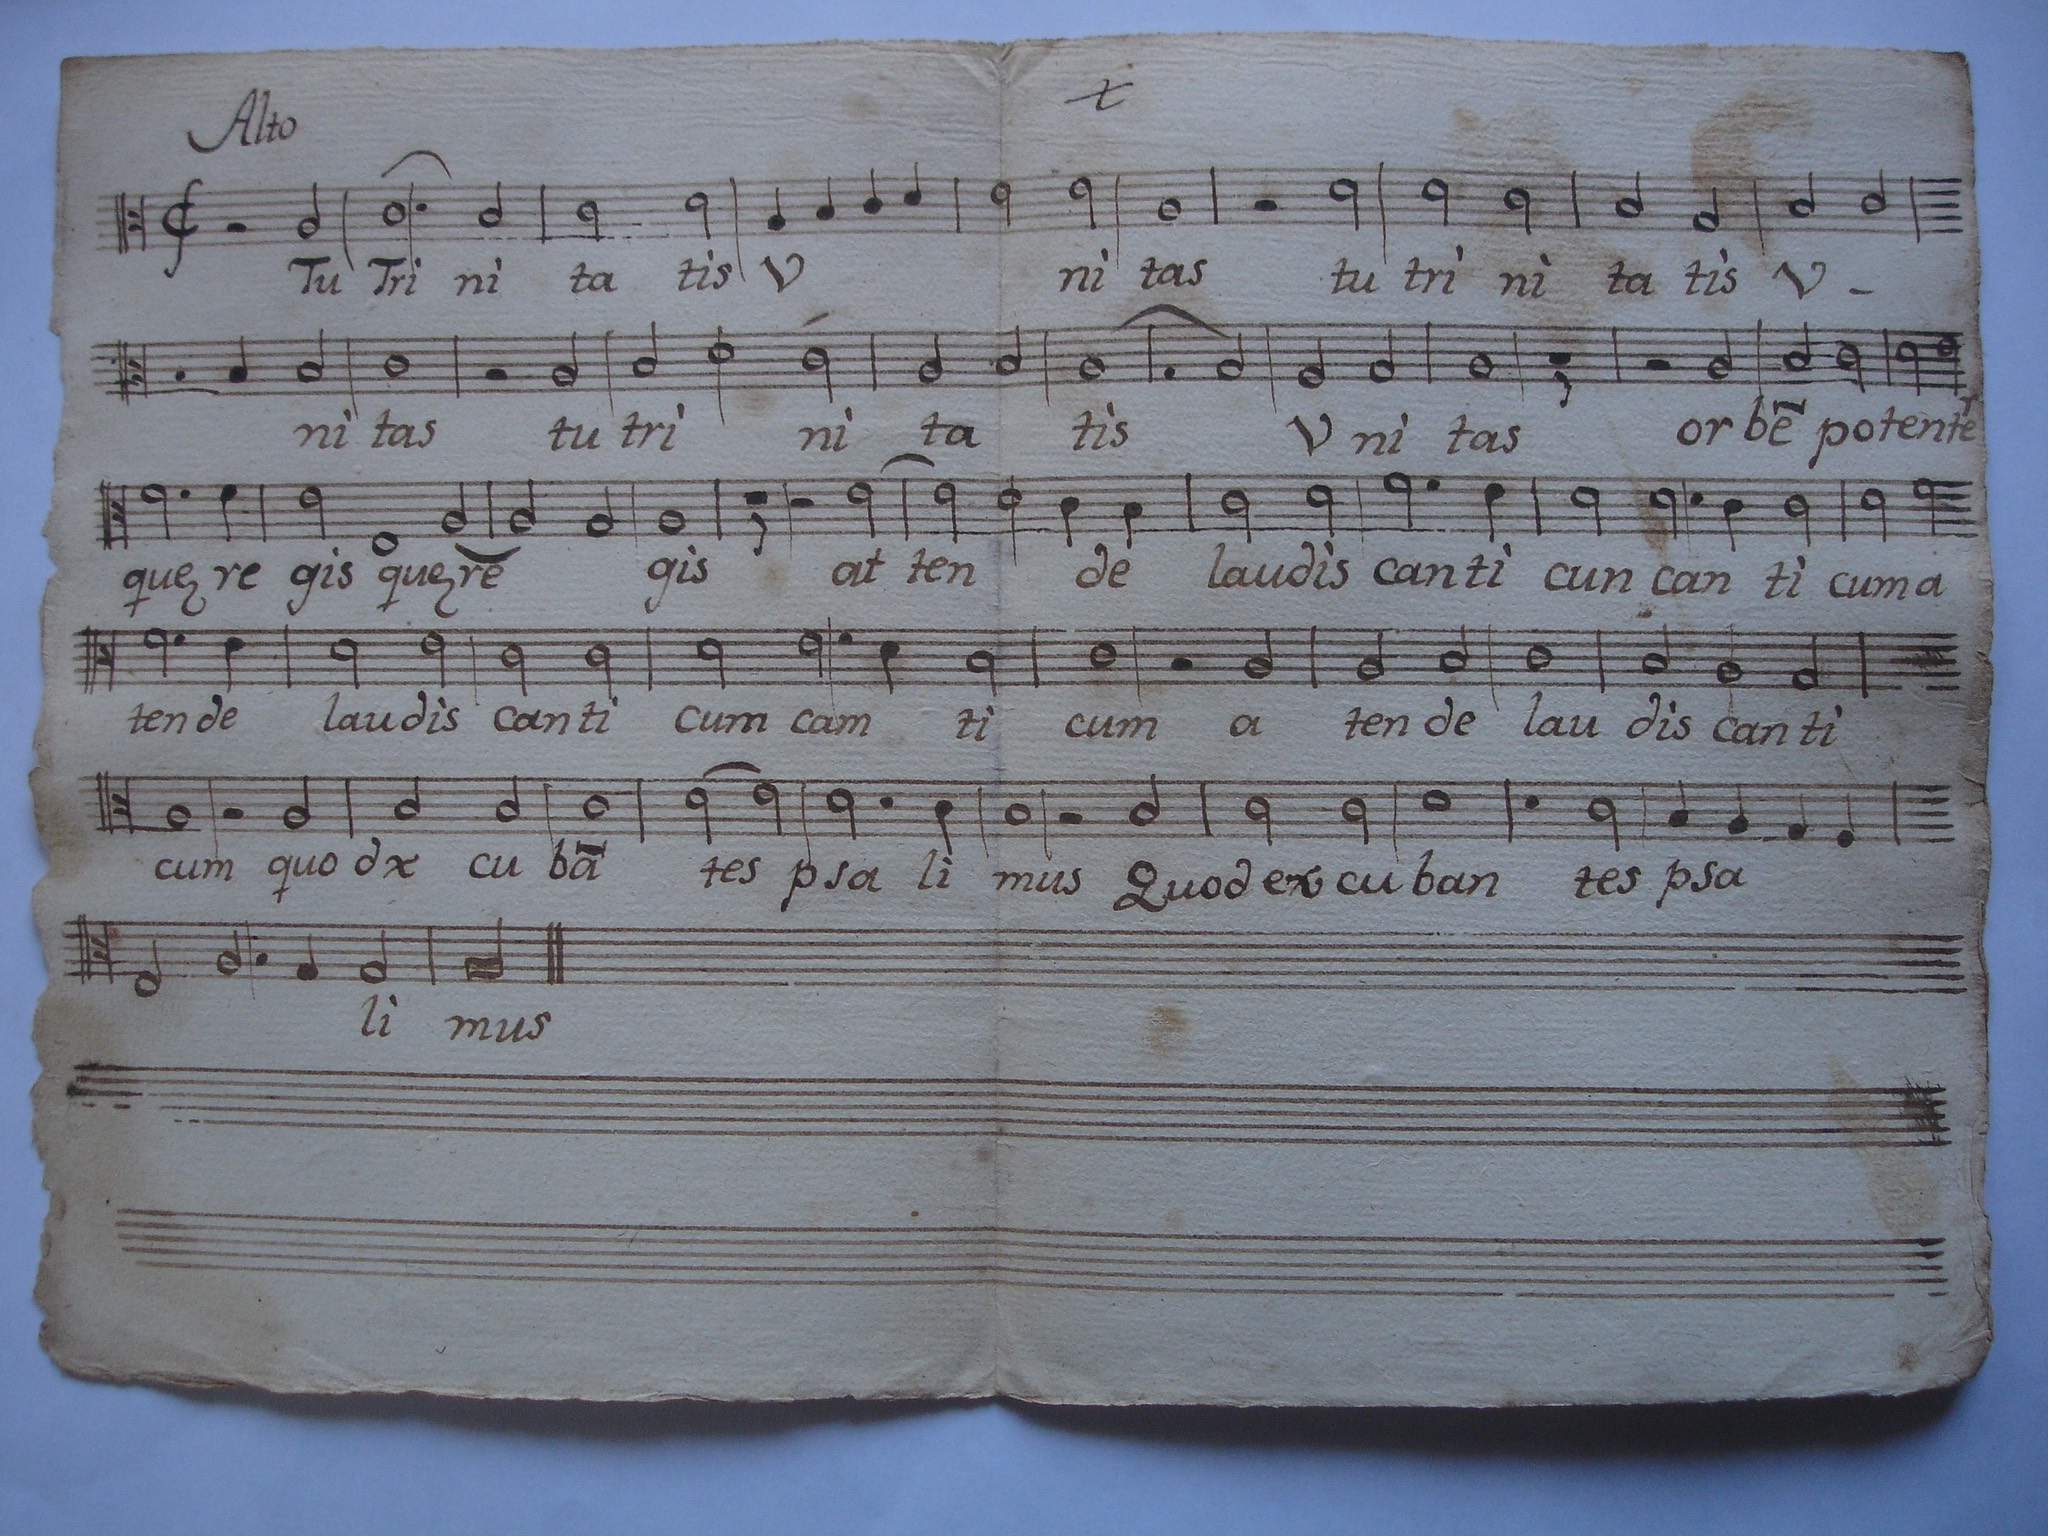 Alto
Tu Tri ni ta tis V ni tas tu tri ni ta tis V -
ni tas tu tri ni ta tis V ni tas or bẽ potente
quę re gis quę re gis at ten de laudis can ti cun can ti cum a
ten de laudis can ti cum cam ti cum a ten de lau dis can ti
cum quo dx cu bã tes psa li mus Quod ex cu ban tes psa
li mus